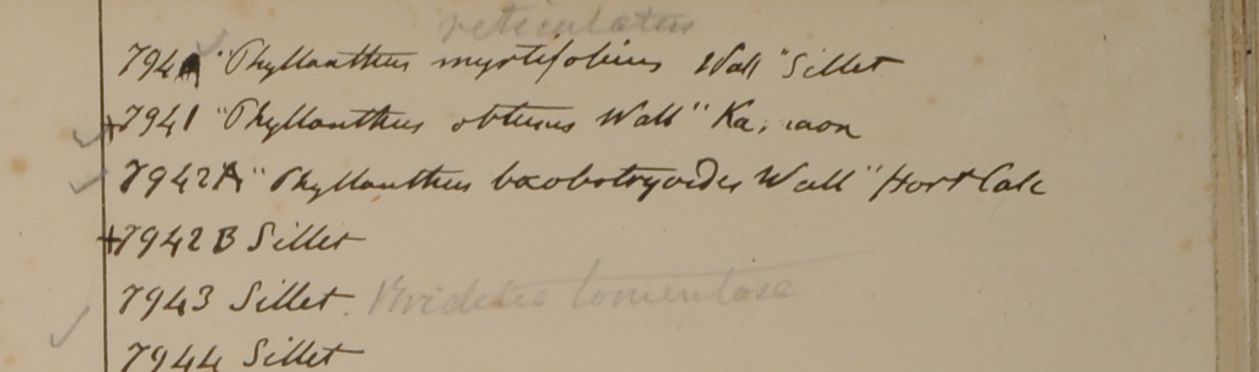 reticulatus
794 "Phyllanthus myrtifolius Wall" Sillet
+7941 "Phyllanthus obtusus Wall" Ka, aon
7942A "Phyllanthus baobotryoides Wall" Hort Calc
+7942B Sillet
7943 Sillet. Bridelia tomentosa
7944 Sillet